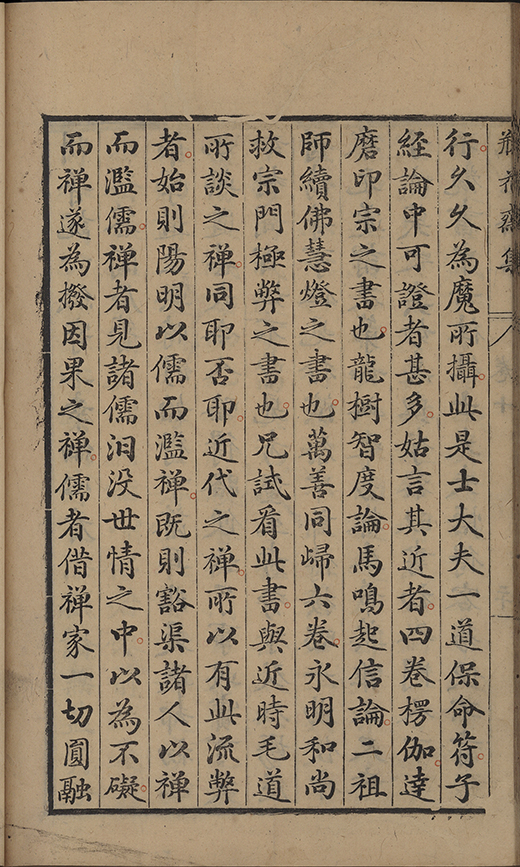 瓶花齋集
行久久為魔所攝此是士大夫一道保命符子
經論中可證者甚多姑言其近者四卷楞伽達
磨印宗之書也龍樹智度論馬鳴起信論二祖
師續佛慧燈之書也萬善同歸六卷永明和尚
救宗門極弊之書也兄試看此書與近時毛道
所談之禪同耶否耶近代之禪所以有此流弊
者始則陽明以儒而濫禪既則豁渠諸人以禪
而濫儒禪者見諸儒汩没世情之中以為不礙
而禪遂為撥因果之禪儒者借禪家一切圓融